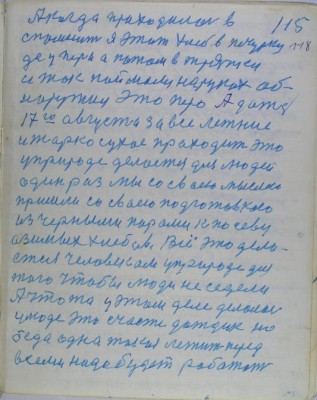 А когда приходилось в 115
спомнит я этот хлеб в печурку 118
де у пера а потом в тряпки
и так поймали на руках об-
наружил это перо А дата
17го августа за все летние
и жарко сухое проходит это
у природе делается для людей
один раз мы со своею мыслею
пришли со своею подготовкою
из черными парами к посеву
озимых хлебов, Всё это дела-
ется человеком у природе для
того чтобы люди не седели
А что то у этом деле делалос
у моде это счасте дождик но
беда одна такая летит перед
всеми надо будет работат